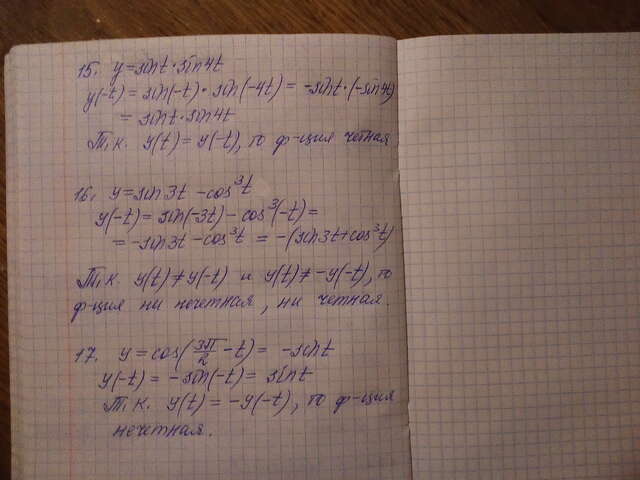 15. y=sint·sin4t
y(-t)=sin(-t)·sin(-4t)=-sint·(-sin4t)
=sint·sin4t
Т.к. y(t)=y(-t), то ф-ция четная
16. y=sin3t-cos³t
y(-t)=sin(-3t)-cos³(-t)=
=-sin3t-cos³t=-(sin3t+cos³t)
Т.к. y(t)≠y(-t) и y(t)≠-y(-t), то
ф-ция ни нечетная, ни четная.
17. y=cos(3π/2-t)=-sint
y(-t)=-sin(-t)=sint
Т.к. y(t)=-y(-t), то ф-ция
нечетная.